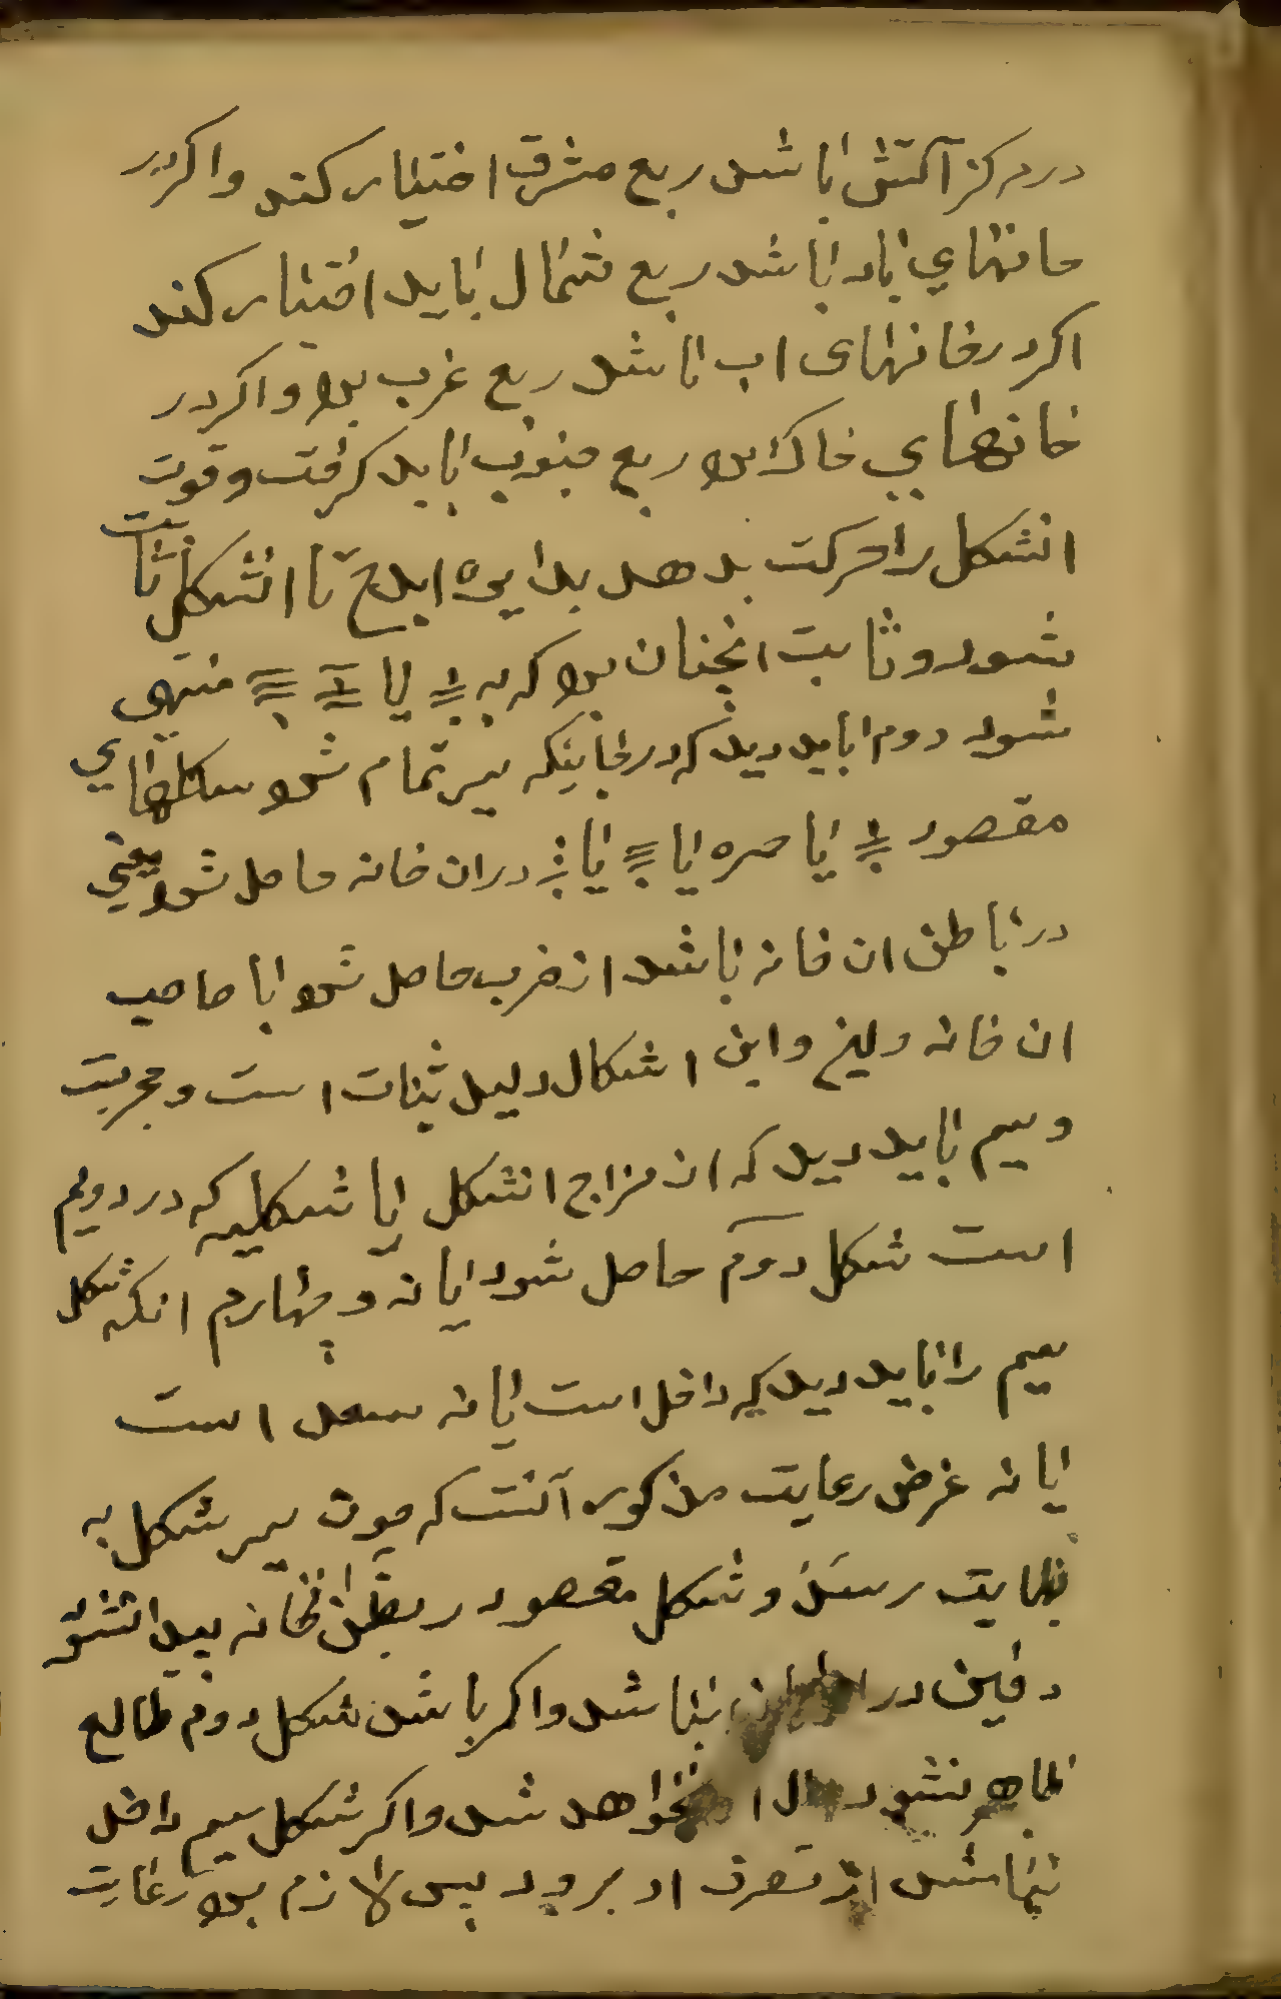 در مرکز آتش باشد ربع مشرق اختیار کند واکر در
خانهای باد باشد ربع شمال باید اختیار کند
اکر در خانهای اب باشد ربع غرب بود واکر در
خانهای خاک بود ربع جنوب باید کرفت وقوت
انشکل را حرکت بدهد بدایره ابدح تا انشکل ثابت
شود و ثابت انچنان بود که به یا منتهی
شود دوم باید دید که در خانیکه سیر تمام شود شکلهای
مقصود یا حمره یا یا دران خانه حاصل شود یعنی
در باطن ان خانه باشد از ضرب حاصل شود با صاحب
ان خانه واین اشکال دلیل ثبات است ومجربت
وسیم باید دید که از مزاج انشکل با شکلیه که در دویم
است شکل دوم حاصل شود یا نه وچهارم انکه شکل
سیم را باید دید که داخل است یا نه سعد است
یا نه غرض رعایت مذکور آنست که چون سیر شکل به
نهایت رسد وشکل مقصود ربطن خانه پیدا نشود
دفین در نباشد واکر باشد شکل دوم طالع
ظاهر نشود نخواهد شد واکر شکل سیم داخل
نباشد از تصرف او برود پس لازم بود رعایت